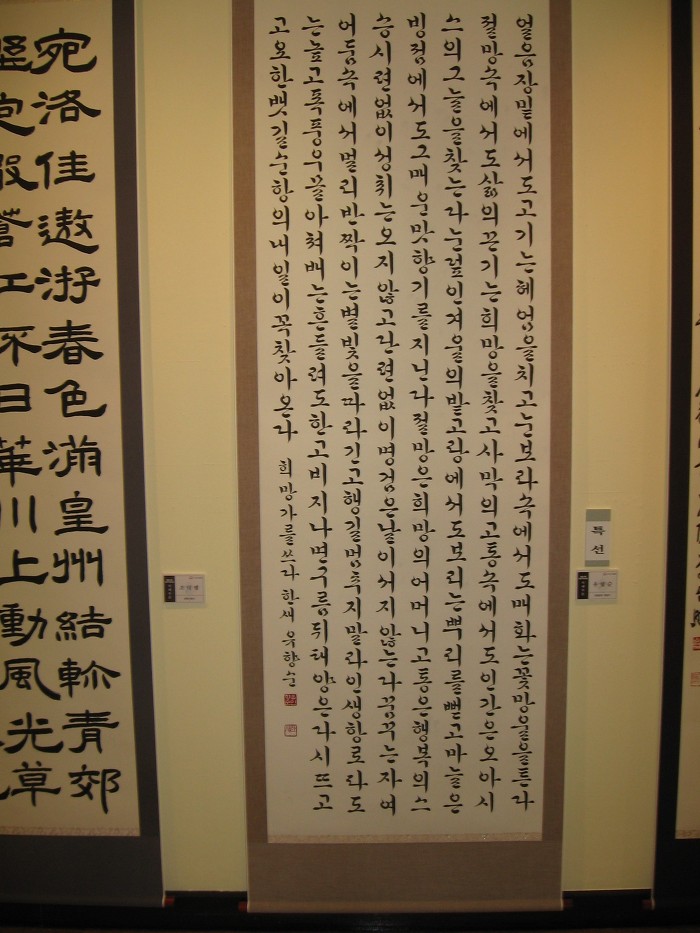 얼음장밑에서도고기는헤엄을치고눈보라속에서도매화는꽃망울을튼다
절망속에서도삶의끈기는희망을찾고사막의고통속에서도인간은오아시
스의그늘을찾는다눈덮인겨울의밭고랑에서도보리는뿌리를뻗고마늘은
빙점에서도그매운맛향기를지닌다절망은희망의어머니고통은행복의스
승시련없이성취는오지않고단련없이명검은날이서지않는다꿈꾸는자여
어둠속에서멀리반짝이는별빛을따라긴고행길멈추지말라인생항로파도
는높고폭풍우몰아쳐배는흔들려도한고비지나면구름뒤태양은다시뜨고
고요한뱃길순항의내일이꼭찾아온다 희망가를쓰다 한새 유향순
특선
宛洛佳遨游春色滿皇州結軫青郊
蒼江日華川上動風光草